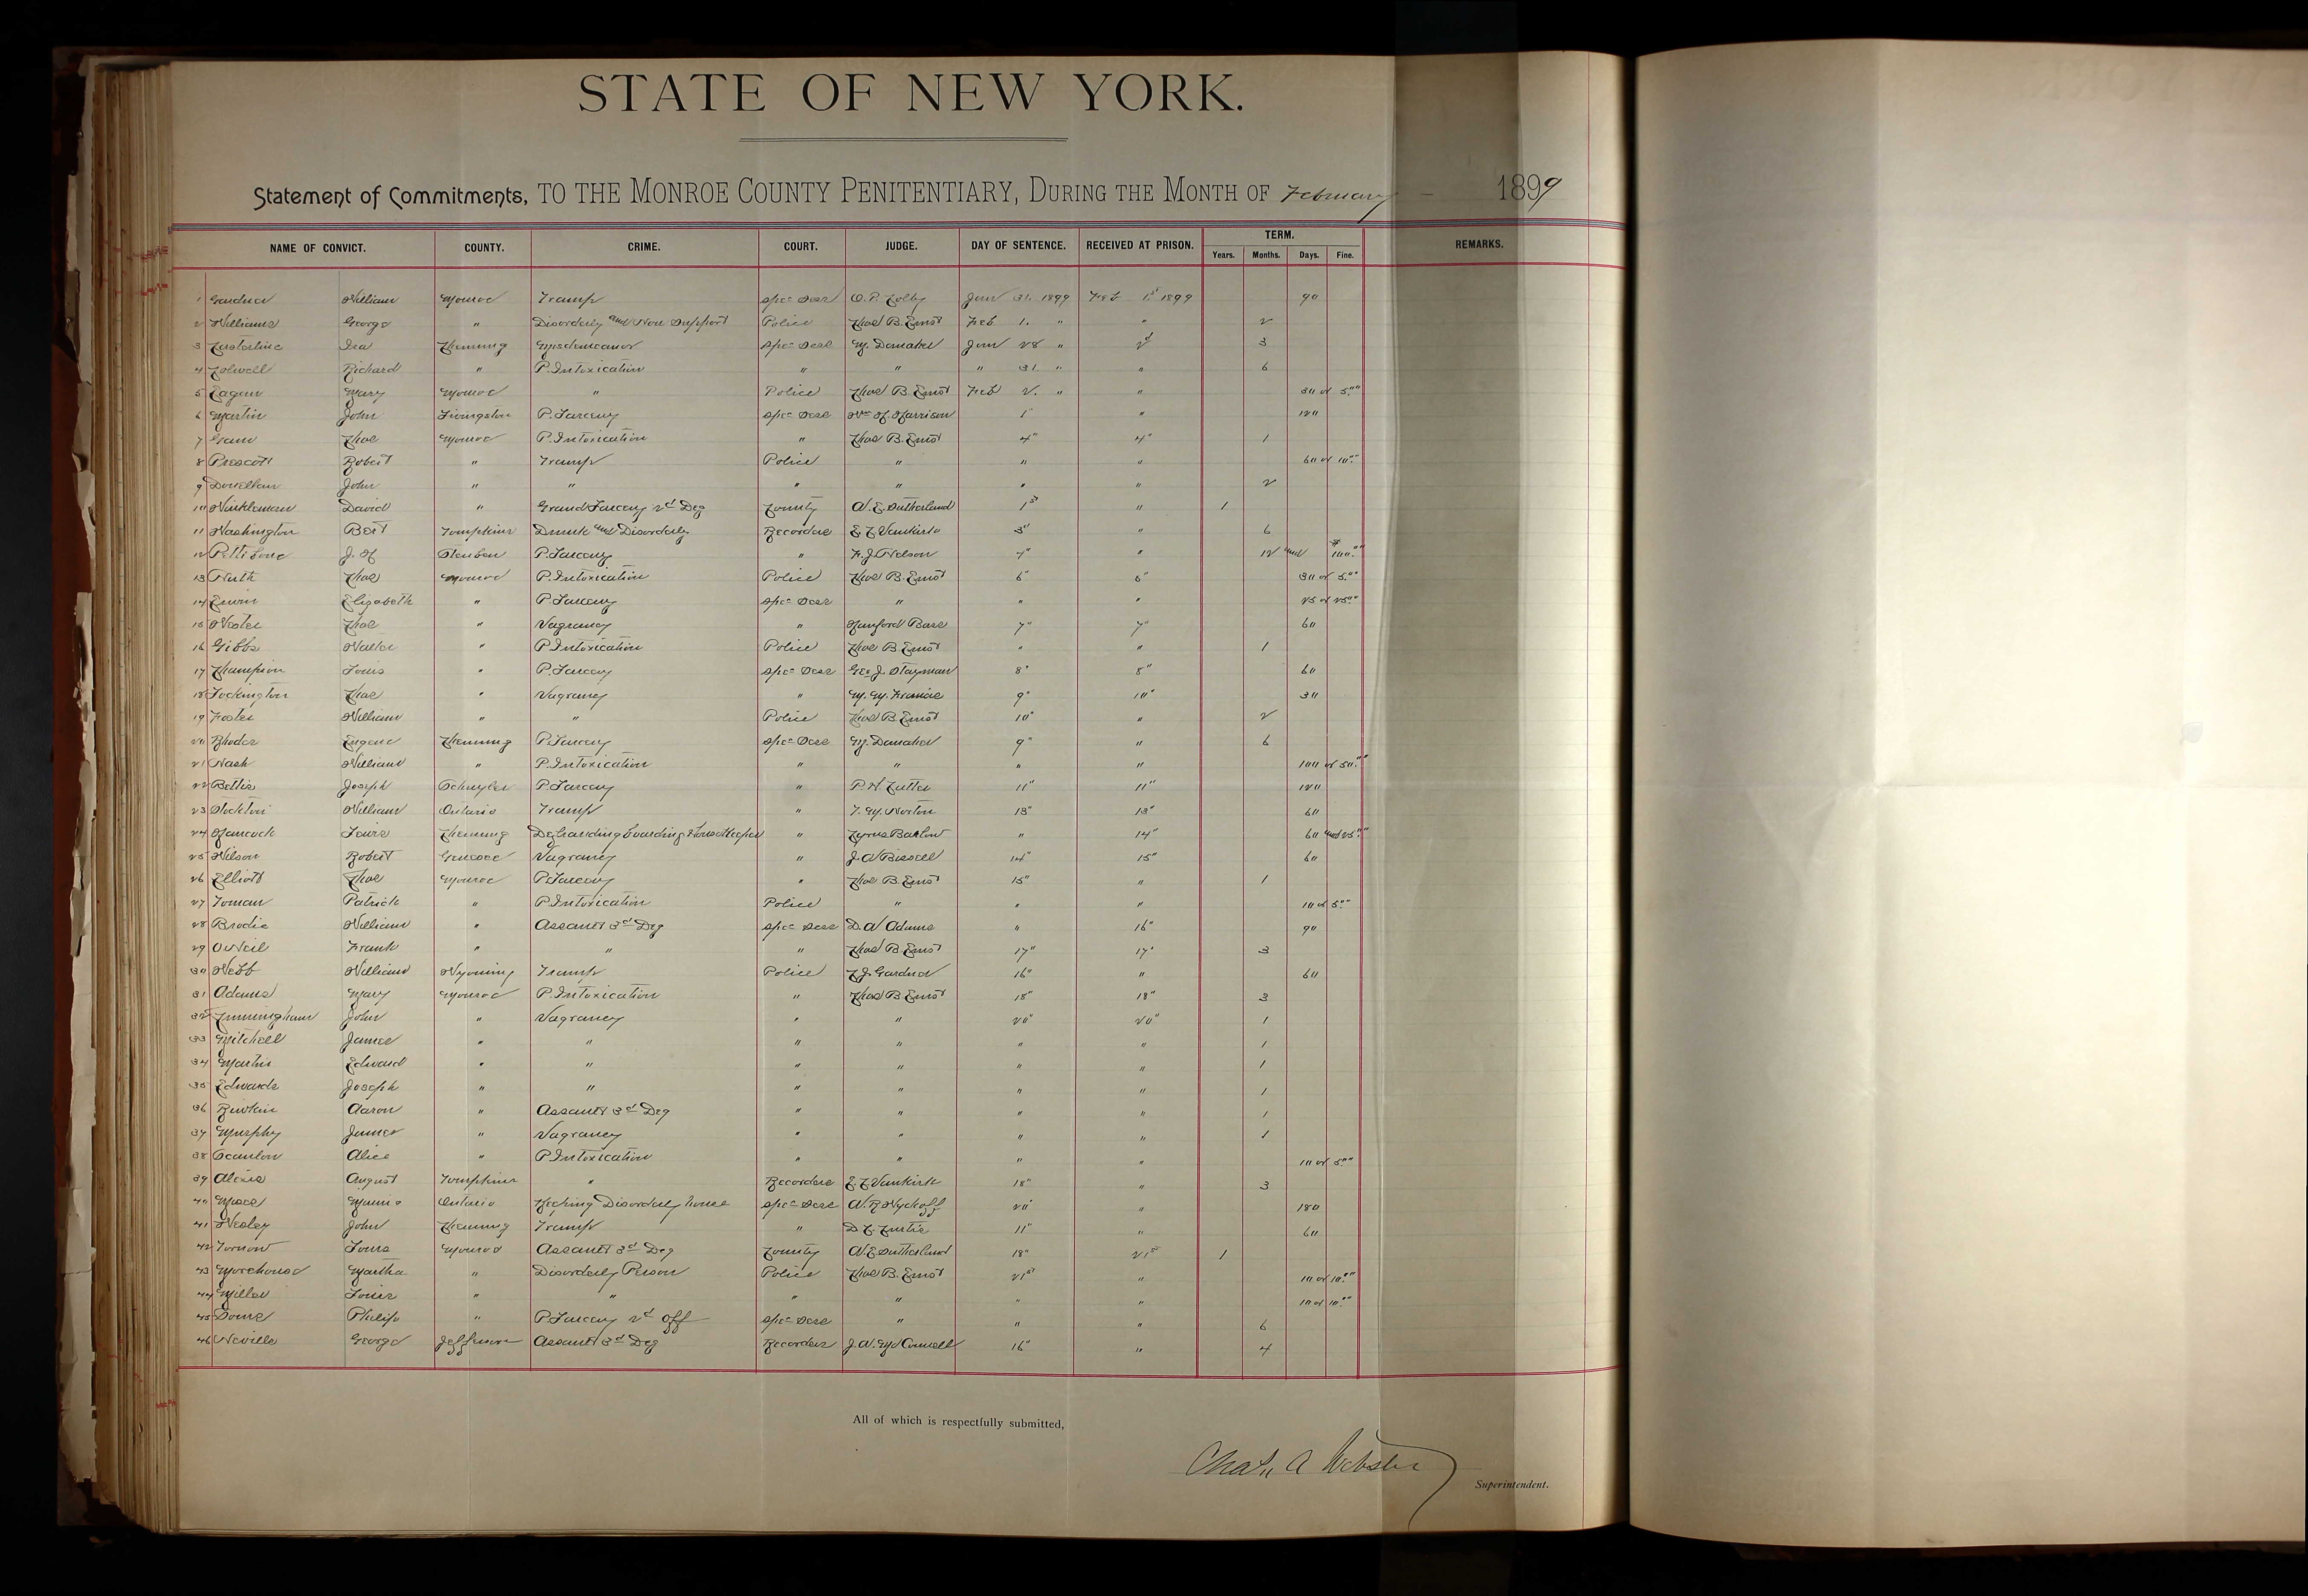 STATE OF NEW YORK.
Statement of Commitments, TO THE MONROE COUNTY PENITENTIARY, DURING THE MONTH OF February 1899
NAME OF CONVICT. COUNTY. CRIME. COURT. JUDGE. DAY OF SENTENCE. RECEIVED AT PRISON. TERM. REMARKS.
Years. Months. Days. Fine.
1 Gardner William Monroe Tramp Spec Sess O.P. Colby Jan 31. 1899 Feb 1st 1899 90
2 Williams George " Disorderly and Non Support Police Chas B. Ernst Feb 1. " " 2
3 Ira Chemung Misdemeanor Spec Sess M. Danaher Jan 28 " 2d 3
4 Colwell Richard " P. Intoxication " " " 31. " " 6
5 Eagan Mary Monroe " Police Chas B. Ernst Feb 2. " " 30 or 5.00
6 Martin John Livingston P. Larceny Spec Sess Wm H. Harrison 1" " 120
7 Chas Monroe P. Intoxication " Chas B. Ernst 4" 4" 1
8 Prescott Robert " Tramp Police " " " 60 or 10.00
9 John " " " " " " 2
10 Winkleman David " Grand Larceny 2d Deg County A. E. Sutherland 1st " 1
11 Washington Bert Tompkins Drunk and Disorderly Recorders E. C. Vankirk 3" " 6
12 J. H Steuben P. Larceny " F. J. Nelson 7" " 12 and $100.00
13 Chas Monroe P. Intoxication Police Chas B. Ernst 6" 6" 30 or 5.00
14 Erwin Elizabeth " P. Larceny Spec Sess " " " 25 or 25.00
15 Chas " Vagrancy " 7" 7" 60
16 Gibbs Walter " P Intoxication Police Chas B Ernst " " 1
17 Champion Louis " P. Larceny Spec Sess Geo. J. Stayman 8" 8" 60
18 Lockington Chas " Vagrancy " 9" 10" 30
19 Foster William " " Police Chas B Ernst 10" " 2
20 Rhodes Eugene Chemung P. Larceny Spec Sess M. Danaher 9" " 6
21 Nash William " P. Intoxication " " " " 100 or 50.00
22 Bettis Joseph Schuyler P. Larceny " 11" 11" 120
23 Stockton William Ontario Tramp " Norton 13" 13" 60
24 Hancock Louis Chemung Defrauding boarding Housekeeper " Cyrus Barlow " 14" 60 and 25.00
25 Wilson Robert Genesee Vagrancy " J. A Bissell 14" 15" 60
26 Elliott Chas Monroe P. Larceny " Chas B. Ernst 15" " 1
27 Toman Patrick " P. Intoxication Police " " " 10 or 5.00
28 Brodie William " Assault 3d Deg Spec Sess D. A Adams " 16" 90
29 O'Neil Frank " " " Chas B Ernst 17" 17" 3
30 Webb William Wyoming Tramp Police C. J. Gardner 16" " 60
31 Adams Mary Monroe P. Intoxication " Chas B Ernst 18" 18" 3
32 Cunningham John " Vagrancy " " 20" 20" 1
33 Mitchell James " " " " " " 1
34 Martin Edward " " " " " " 1
35 Edwards Joseph " " " " " " 1
36 Aaron " Assault 3d Deg " " " " 1
37 Murphy James " Vagrancy " " " " 1
38 Scanlon Alice " P. Intoxication " " " " 10 or 5.00
39 Alexis August Tompkins " Recorders E. C. Vankirk 18" " 3
40 Mamie Ontario Keeping Disorderly house Spec Sess A. R Wyckoff 20" " 180
41 Wesley John Chemung Tramp " D. C. Curtis 11" " 60
42 Louis Monroe Assault 3d Deg County A. E Sutherland 18" 21st 1
43 Morehouse Martha " Disorderly Person Police Chas B. Ernst 21st " 10 or 10.00
44 Miller Louis " " " " " " 10 or 10.00
45 Philip " P. Larceny 2d off Spec Sess " " " 6
46 Neville George Jefferson Assault 3d Deg Recorders 16" " 4
All of which is respectfully submitted,
Chas. A Webster
Superintendent.